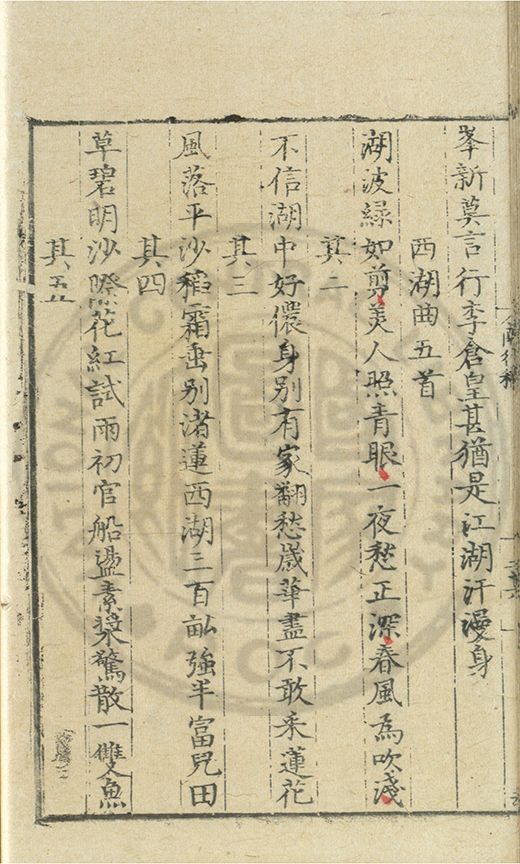 峯新莫言行李倉皇甚猶是江湖汗漫身
西湖曲五首
湖波綠如剪美人照青眼一夜愁正深春風為吹淺
其二
不信湖中好儂身別有家翻愁歲華盡不敢采蓮花
其三
風落平沙稻霜垂別渚蓮西湖三百畝強半富兒田
其四
草碧明沙際花紅試雨初官船盪素槳驚散一雙魚
其五